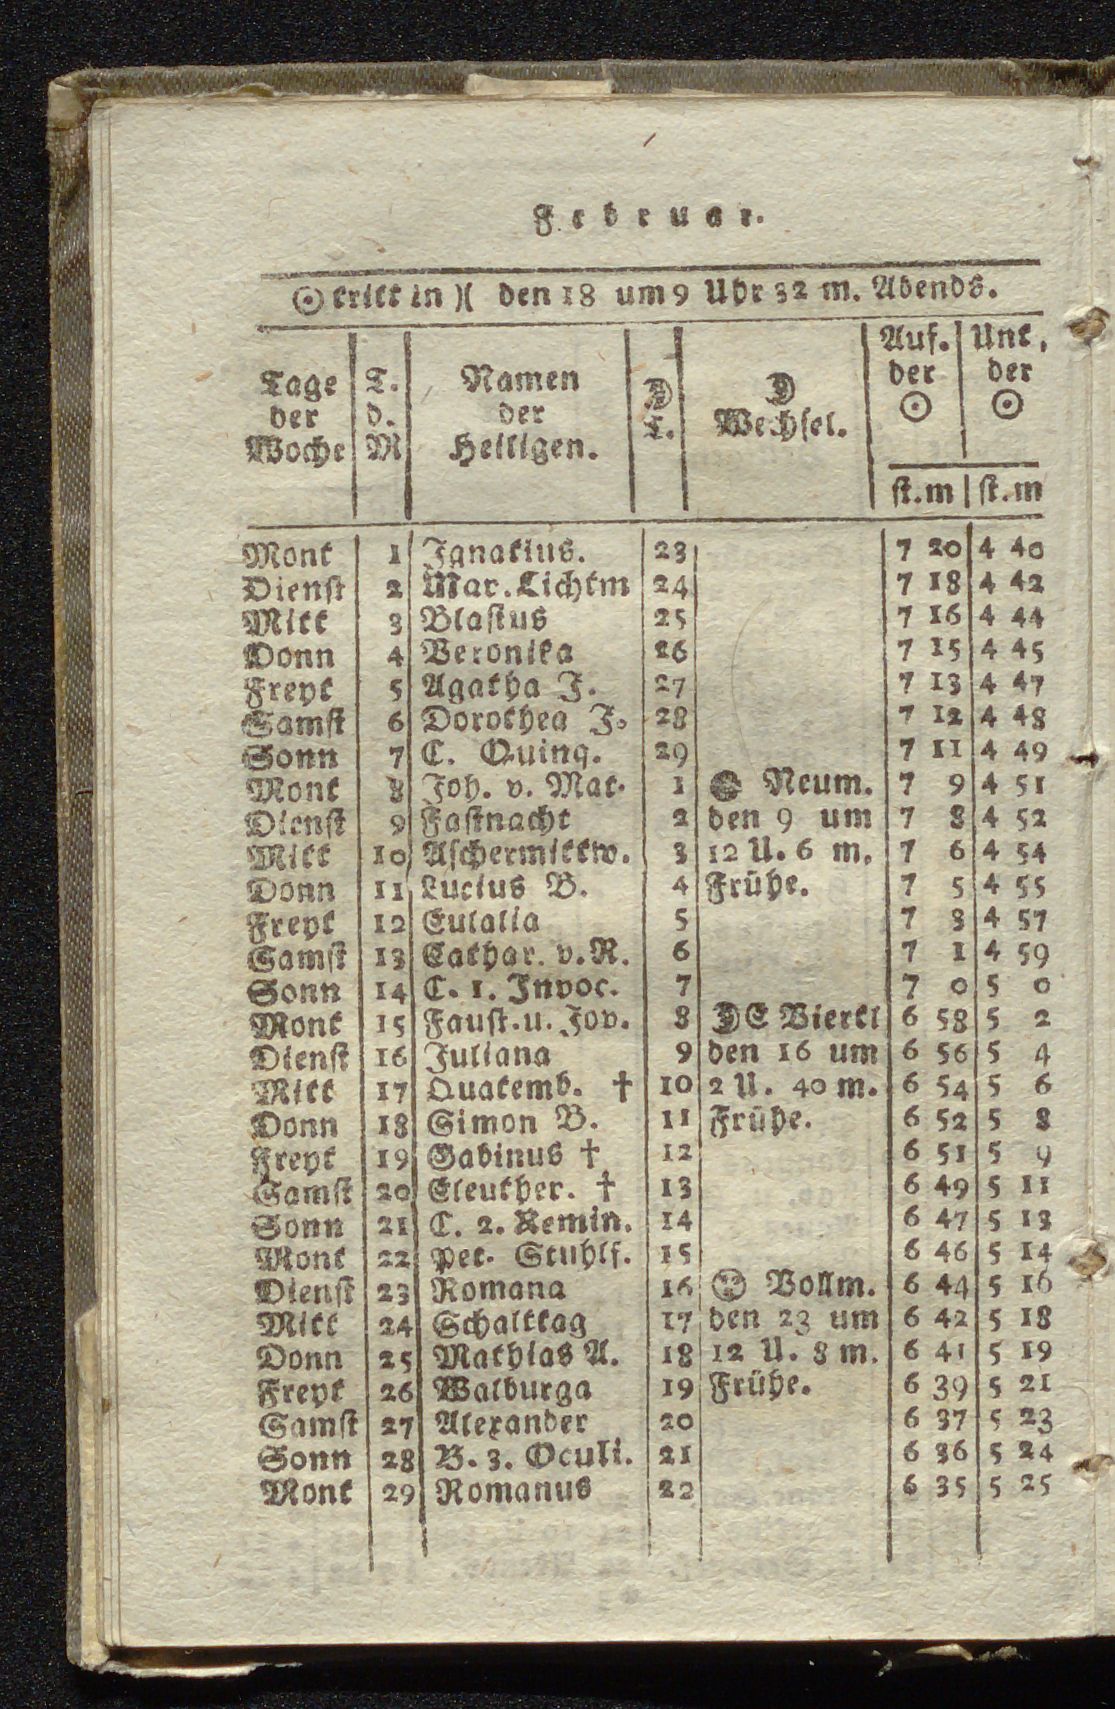 Februar.
☉ tritt in ♓ den 18 um 9 Uhr 32 m. Abends.
Tage der Woche | T. d. M | Namen der Heiligen. | ☽ L. | ☽ Wechsel. | Auf. der ☉ | Unt. der ☉
st. m | st. m
Mont 1 Ignatius. 23 7 20 4 40
Dienst 2 Mar. Lichtm 24 7 18 4 42
Mitt 3 Blasius 25 7 16 4 44
Donn 4 Veronika 26 7 15 4 45
Freyt 5 Agatha J. 27 7 13 4 47
Samst 6 Dorothea J. 28 7 12 4 48
Sonn 7 C. Quinq. 29 7 11 4 49
Mont 8 Joh. v. Mat. 1 Neum. 7 9 4 51
Dienst 9 Fastnacht 2 den 9 um 7 8 4 52
Mitt 10 Aschermittw. 3 12 U. 6 m. 7 6 4 54
Donn 11 Lucius B. 4 Frühe. 7 5 4 55
Freyt 12 Eulalia 5 7 3 4 57
Samst 13 Cathar. v. R. 6 7 1 4 59
Sonn 14 C. 1. Invoc. 7 7 0 5 0
Mont 15 Faust. u. Jov. 8 ☽ E Viertl 6 58 5 2
Dienst 16 Juliana 9 den 16 um 6 56 5 4
Mitt 17 Quatemb. † 10 2 U. 40 m. 6 54 5 6
Donn 18 Simon B. 11 Frühe. 6 52 5 8
Freyt 19 Gabinus † 12 6 51 5 9
Samst 20 Eleuther. † 13 6 49 5 11
Sonn 21 C. 2. Remin. 14 6 47 5 13
Mont 22 Pet. Stuhlf. 15 6 46 5 14
Dienst 23 Romana 16 Vollm. 6 44 5 16
Mitt 24 Schalttag 17 den 23 um 6 42 5 18
Donn 25 Mathias A. 18 12 U. 8 m. 6 41 5 19
Freyt 26 Walburga 19 Frühe. 6 39 5 21
Samst 27 Alexander 20 6 37 5 23
Sonn 28 B. 3. Oculi. 21 6 36 5 24
Mont 29 Romanus 22 6 35 5 25